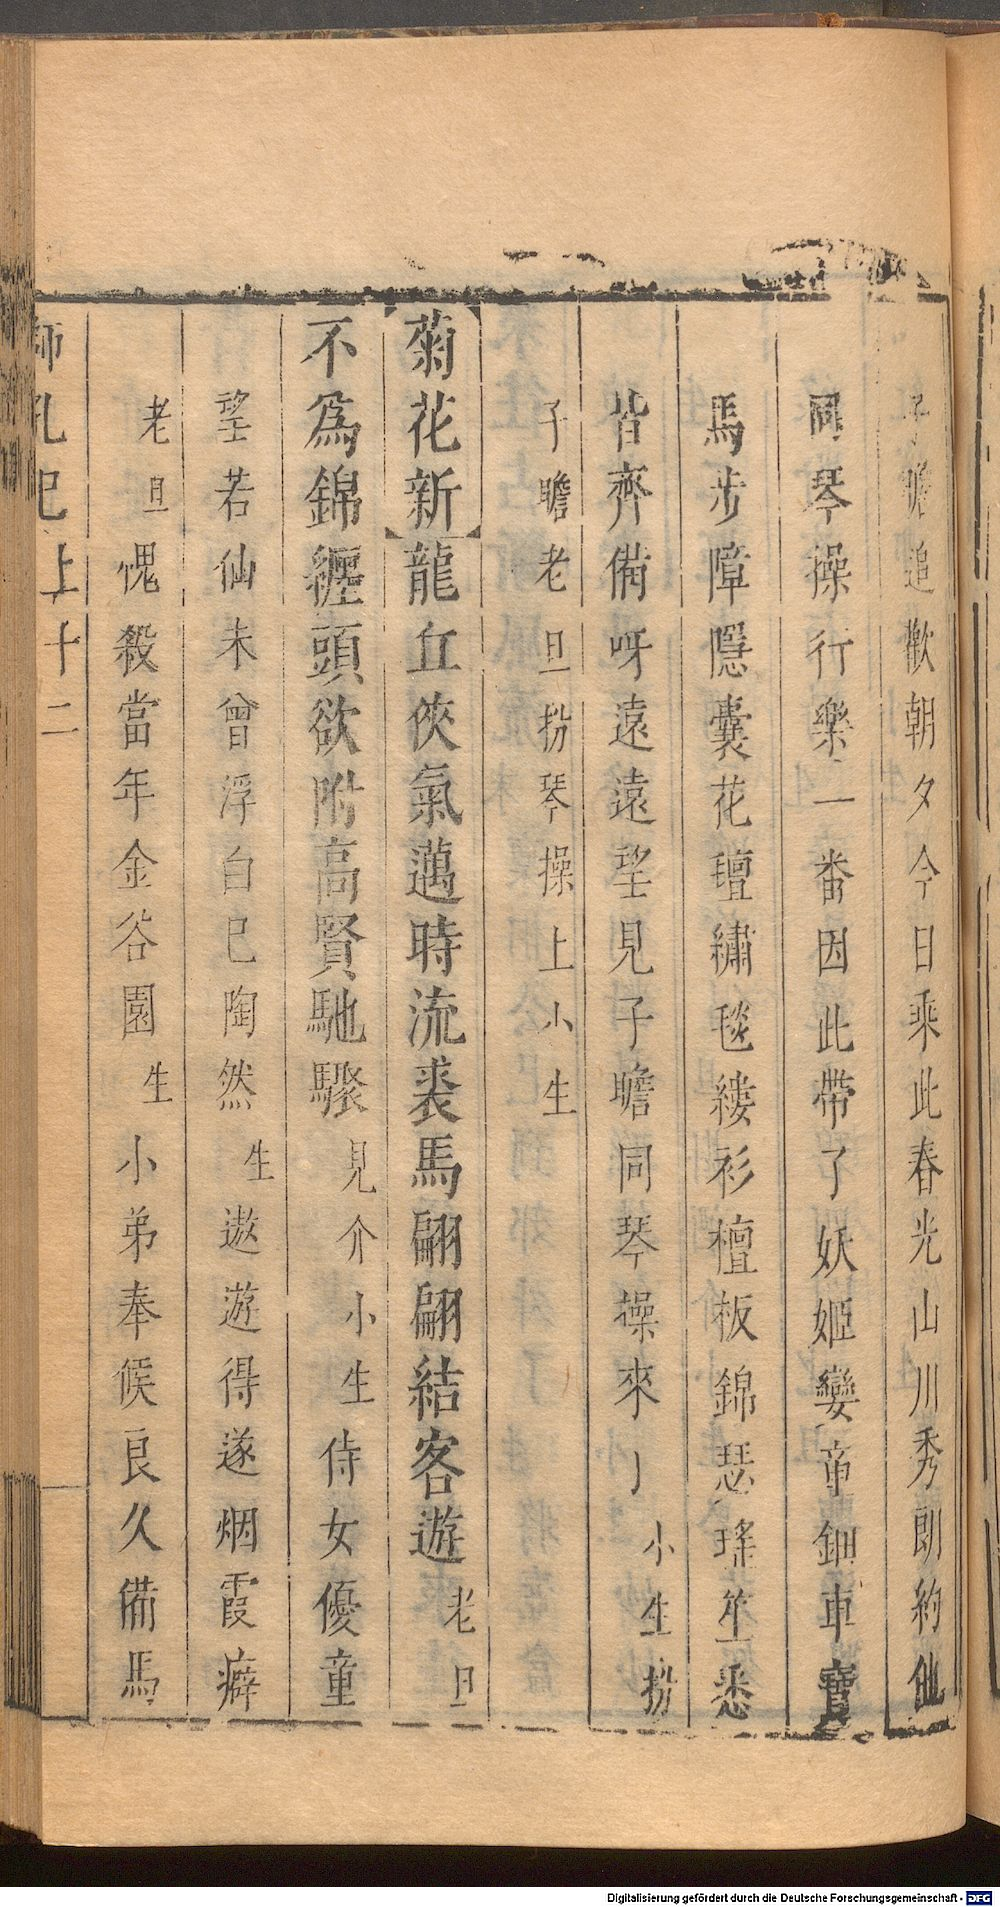 子瞻追歡朝夕今日乘此春光山川秀朗約他
同琴操行樂一番因此帶了妖姬孌童鈿車寶
馬步障隱囊花氊繡毯縷衫檀板錦瑟瑤笙悉
皆齊備呀遠遠望見子瞻同琴操來了小生扮
子瞻老旦扮琴操上小生
菊花新龍丘俠氣邁時流裘馬翩翩結客遊老旦
不為錦纏頭欲附高賢馳驟見介小生侍女優童
望若仙未曾浮白已陶然生遨遊得遂烟霞癖
老旦愧殺當年金谷園生小弟奉候良久備馬
獅吼記上十二
Digitalisierung gefördert durch die Deutsche Forschungsgemeinschaft - DFG